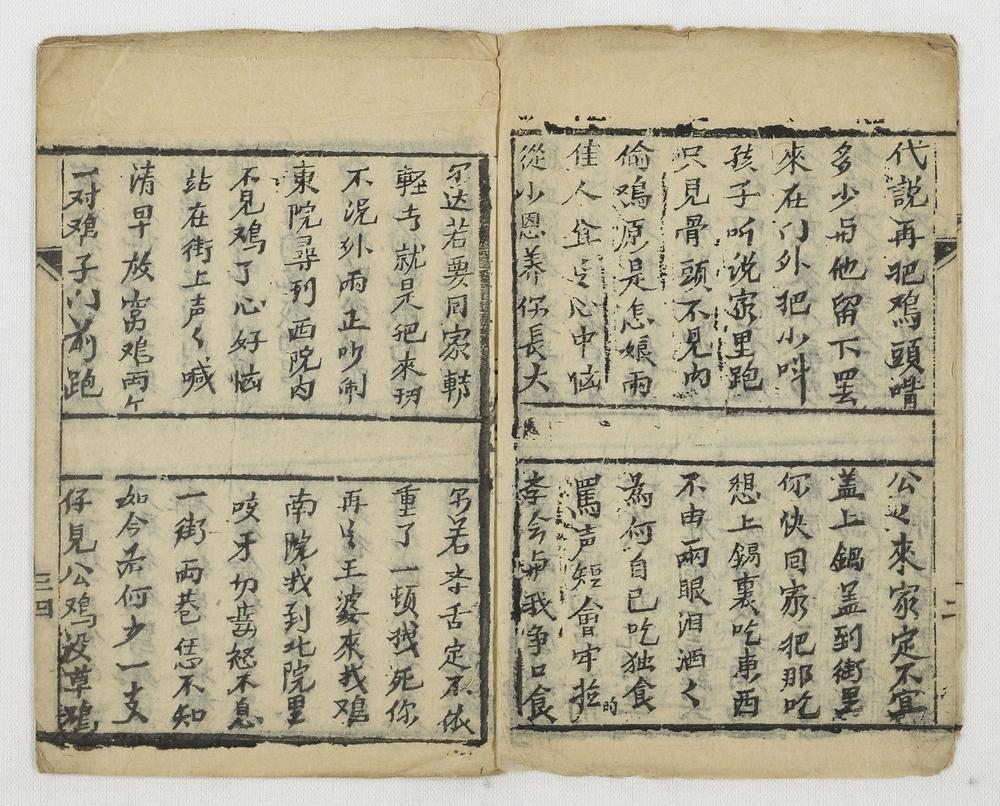 代說再把鸡頭啃
公之來家定不宜
多少与他留下罢
盖上鍋盖到街里
來在门外把小叫
你快回家把那吃
孩子听说家里跑
想上鍋裏吃東西
只見骨頭不見肉
不由兩眼泪洒々
偷鸡原是怎娘雨
為何自己吃独食
佳人言心中恼
罵声短會牢拉的
從小恩养你長大
李会与我争口食
达若要回家轉
若李舌定不依
軽者就是把來
重了一頓死你
不说外雨正吵闹
再言王婆來找鸡
東院尋到西院内
南院找到北院里
不見鸡了心好恼
咬牙切齒怒不息
站在街上声々喊
一街两巷恁不知
清早放窝鸡两个
如今為何少一支
一对鸡子门前跑
仔見公鸡没草鸡
二
三四